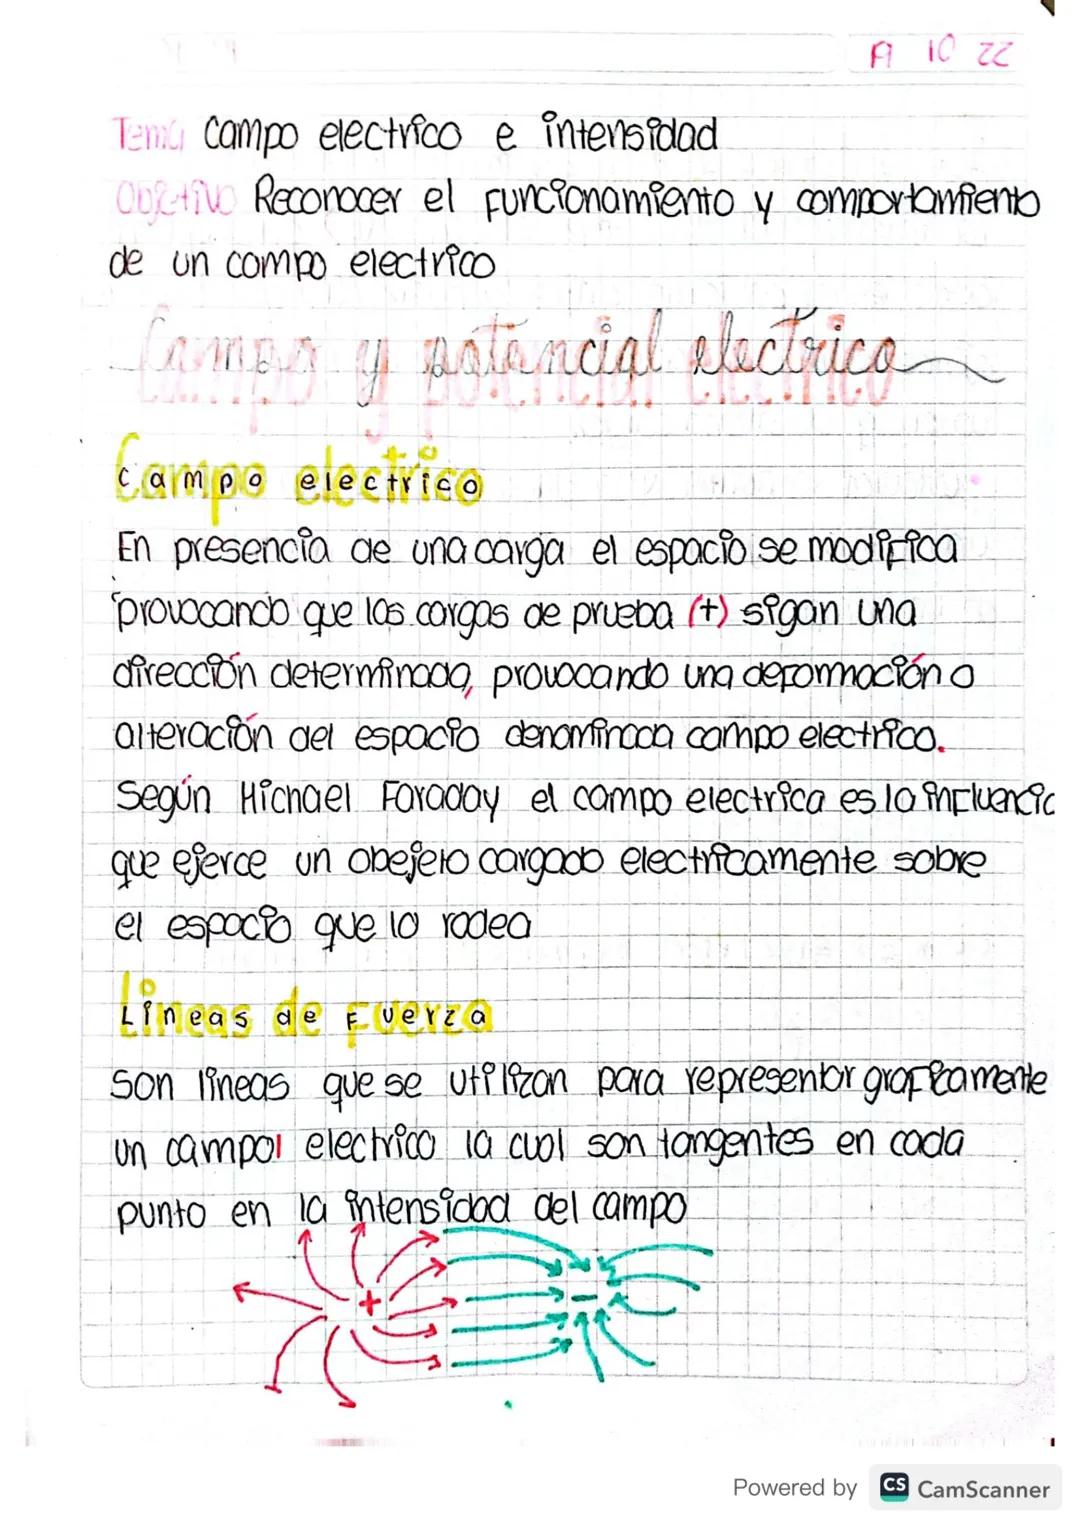 A 10 22
Tema campo electrico e intensidad
Objetivo Reconocer el funcionamiento y comportamiento
de un campo electrico
Campo y potencial electrico
Campo electrico
En presencia de una carga el espacio se modifica
provocando que las cargas de prueba (+) sigan una
dirección determinada, provocando una deformación o
alteración del espacio denominada campo electrico.
Según Michael Faraday el campo electrica es la influencia
que ejerce un obejeto cargado electricamente sobre
el espacio que lo rodea
Lineas de Fuerza
Son lineas que se utilizan para representar graficamente
un campo electrico la cual son tangentes en cada
punto en la intensidad del campo
+ −
Powered by CS CamScanner